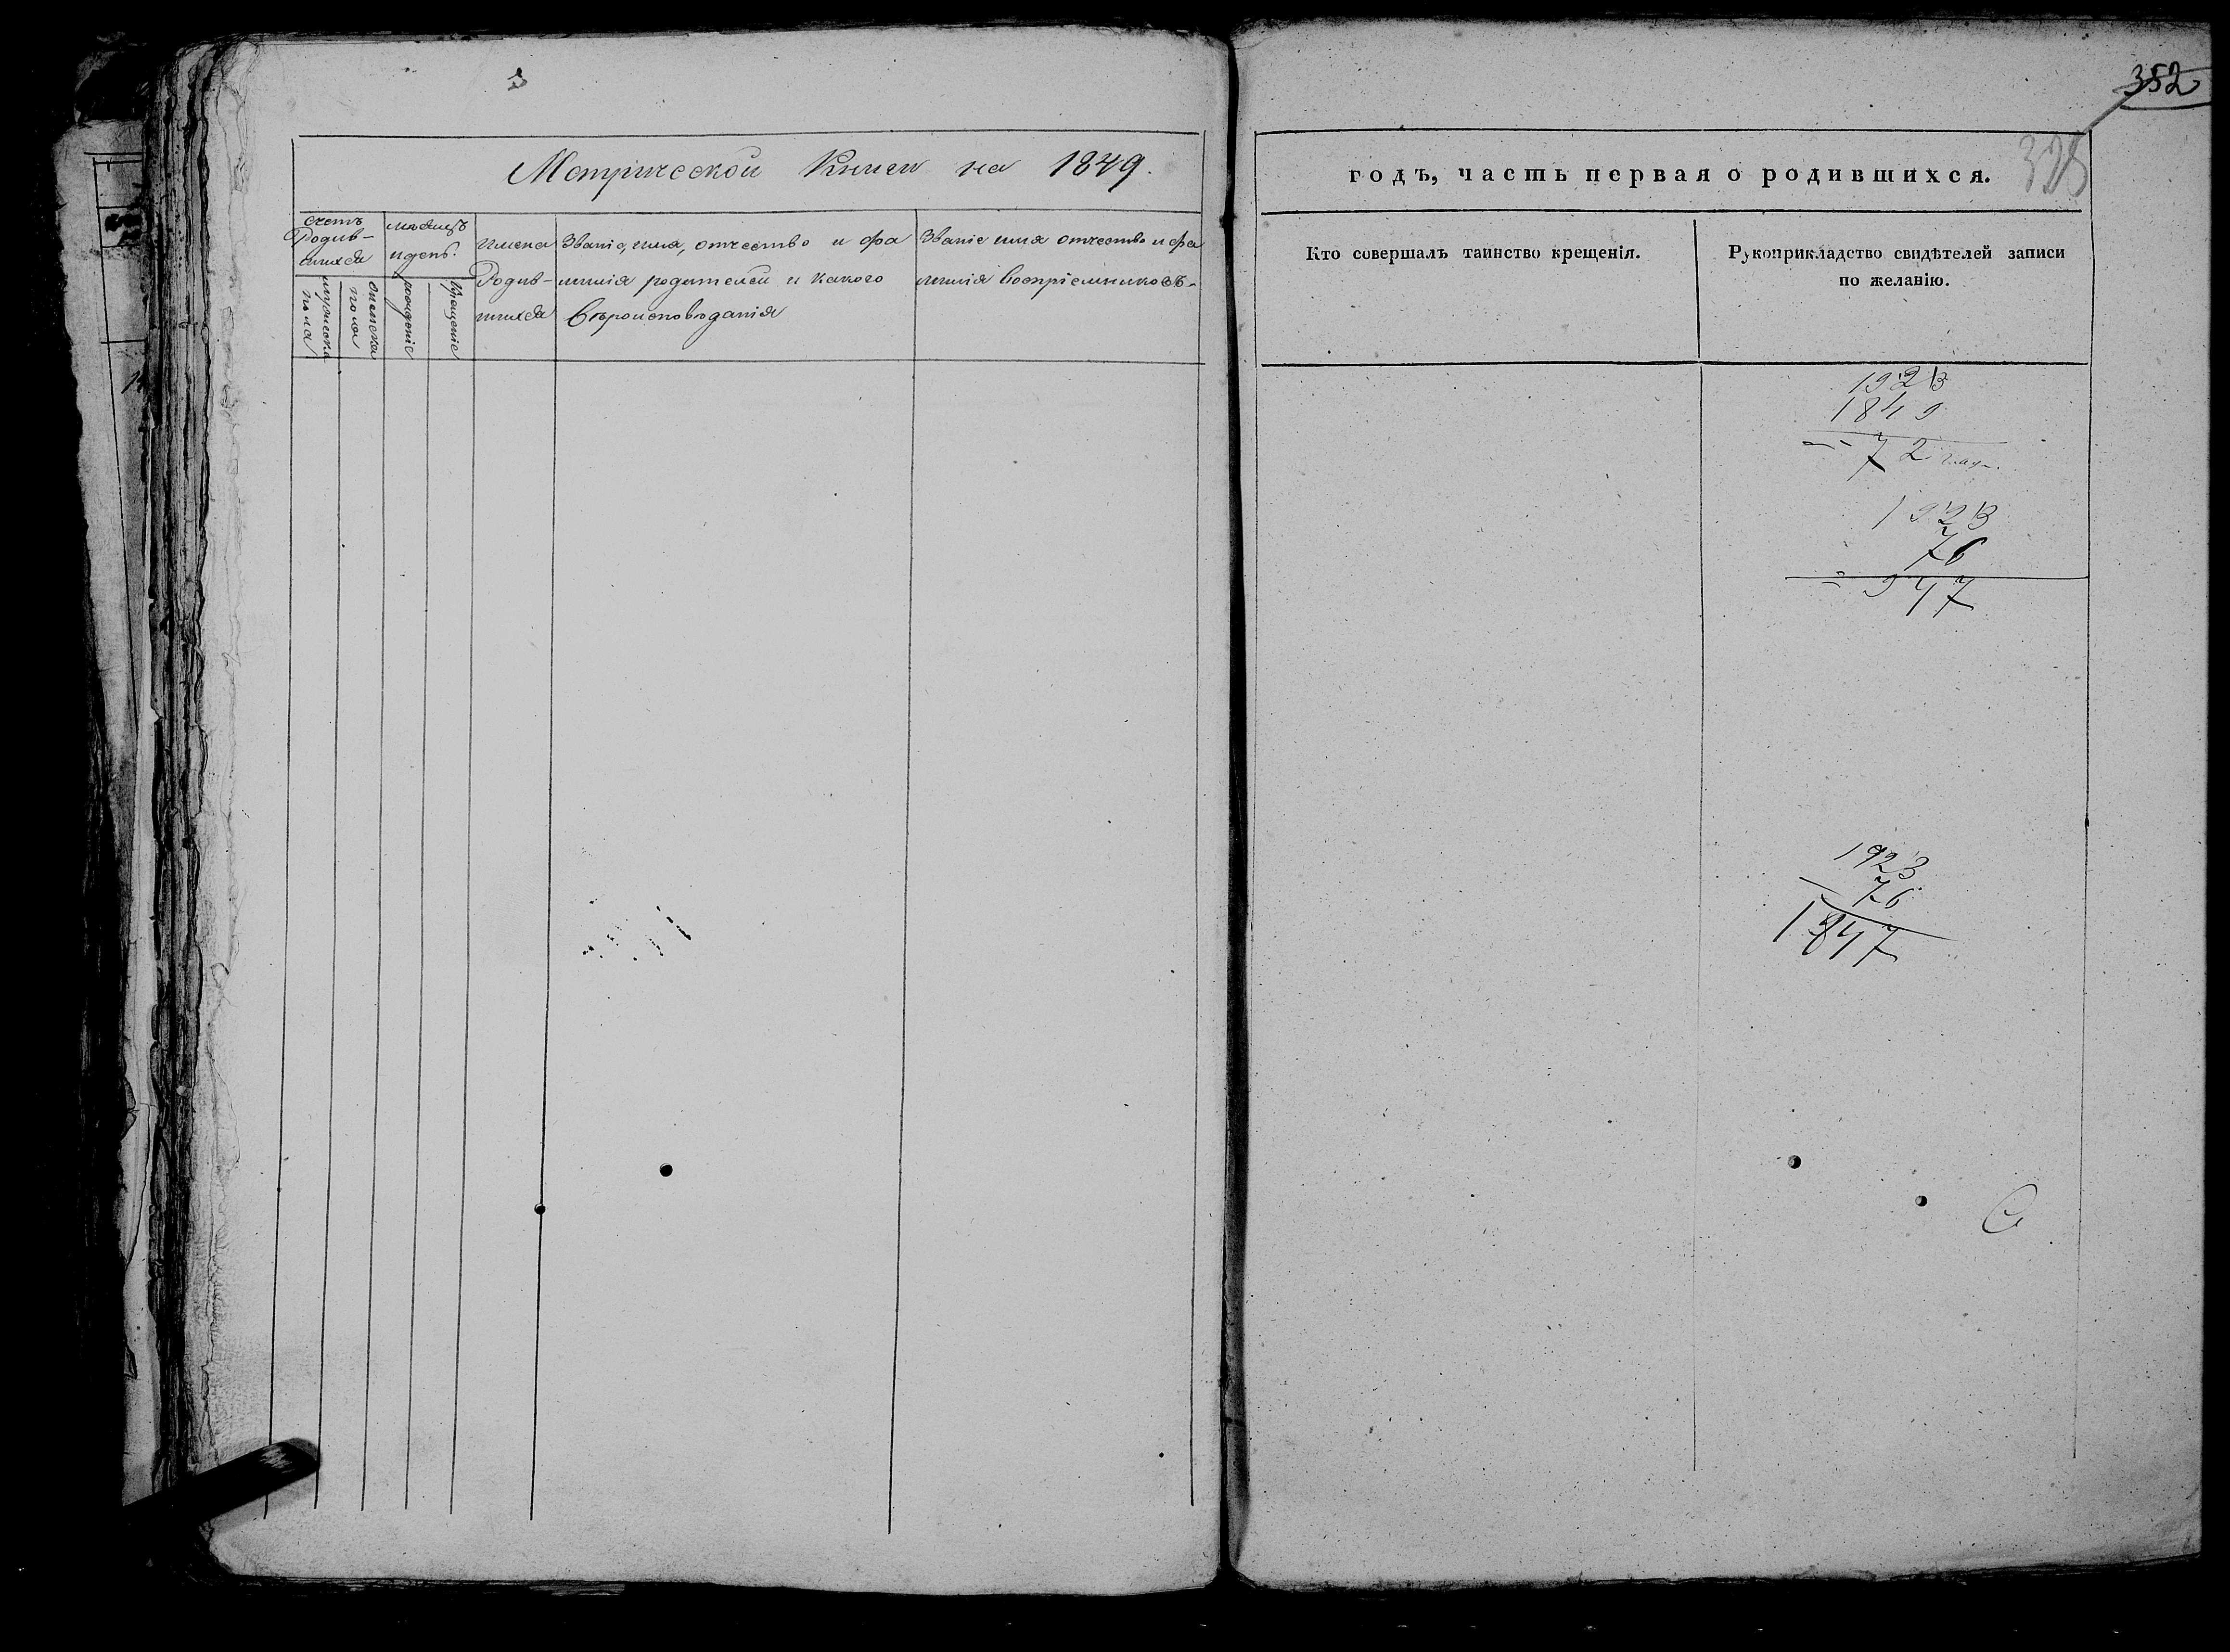 352
328
Метрической Книги на 1849.
годъ, часть первая о родившихся.
счетъ
Родив-
шихся
мужеска
пола
женска
пола
мѣсяцъ
и день.
рожденіе
крещеніе
Имена
Родив-
шихся
Званіе, имя, отчество и фа
милія родителей и какого
вѣроисповѣданія
Званіе имя отчество и фа
милія воспріемниковъ-
Кто совершалъ таинство крещенія.
Рукоприкладство свидѣтелей записи
по желанію.
1923
1849
72
1923
76
= 947
1923
76
1847